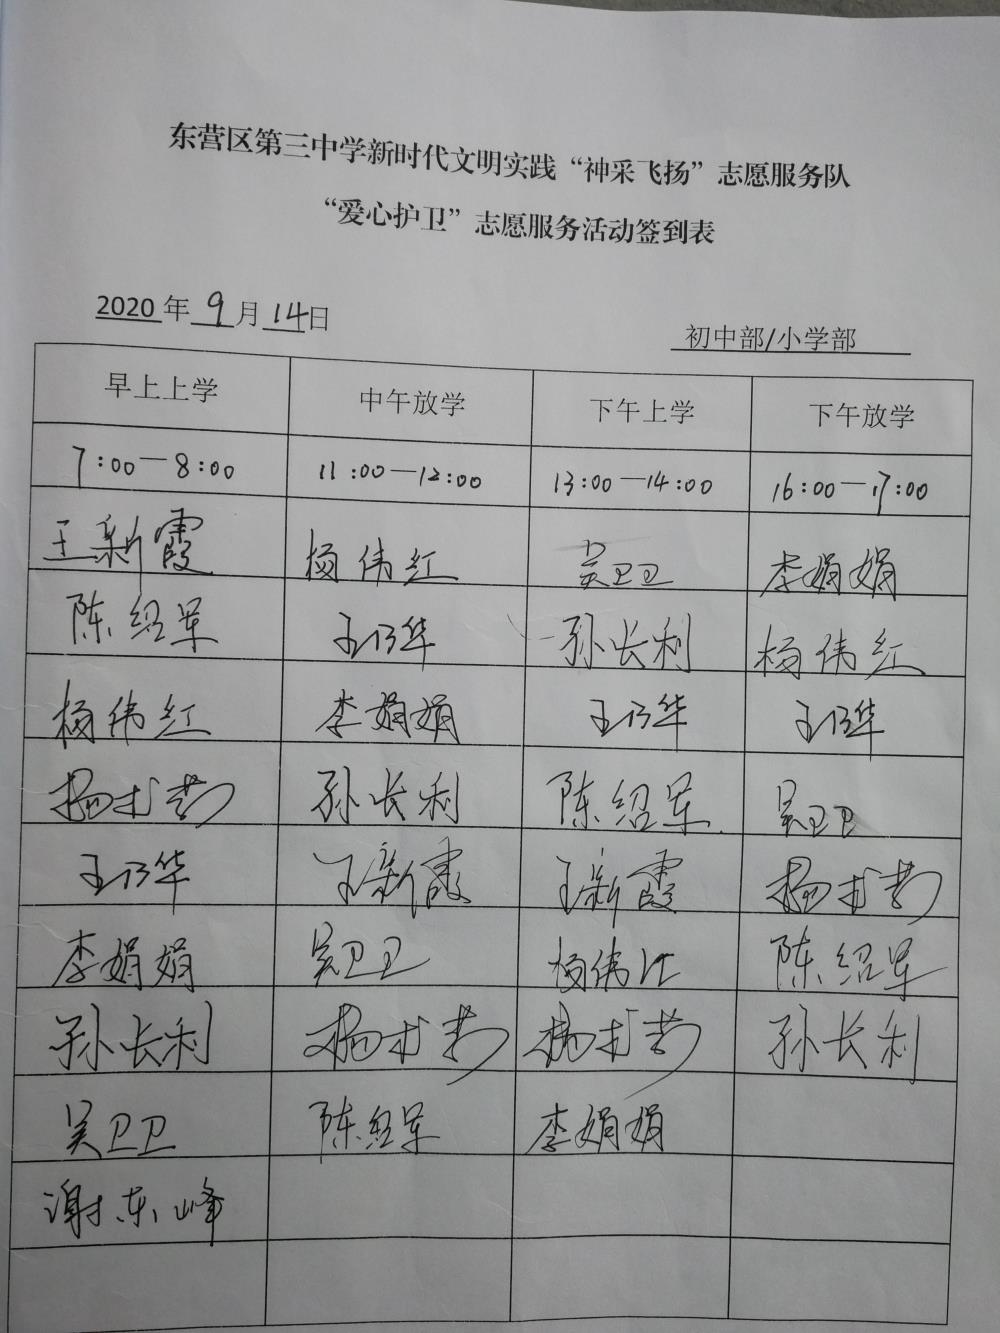 东营区第三中学新时代文明实践“神采飞扬”志愿服务队
“爱心护卫”志愿服务活动签到表
2020年 9月 14日
初中部/小学部
早上上学 中午放学 下午上学 下午放学
7:00—8:00 11:00—12:00 13:00—14:00 16:00—17:00
王新霞 杨伟红 吴卫卫 李娟娟
陈绍军 王乃华 孙长利 杨伟红
杨伟红 李娟娟 王乃华 王乃华
孙长利 陈绍军 吴卫卫
王乃华 王新霞 王新霞
李娟娟 吴卫卫 杨伟红 陈绍军
孙长利 孙长利
吴卫卫 陈绍军 李娟娟
谢东峰